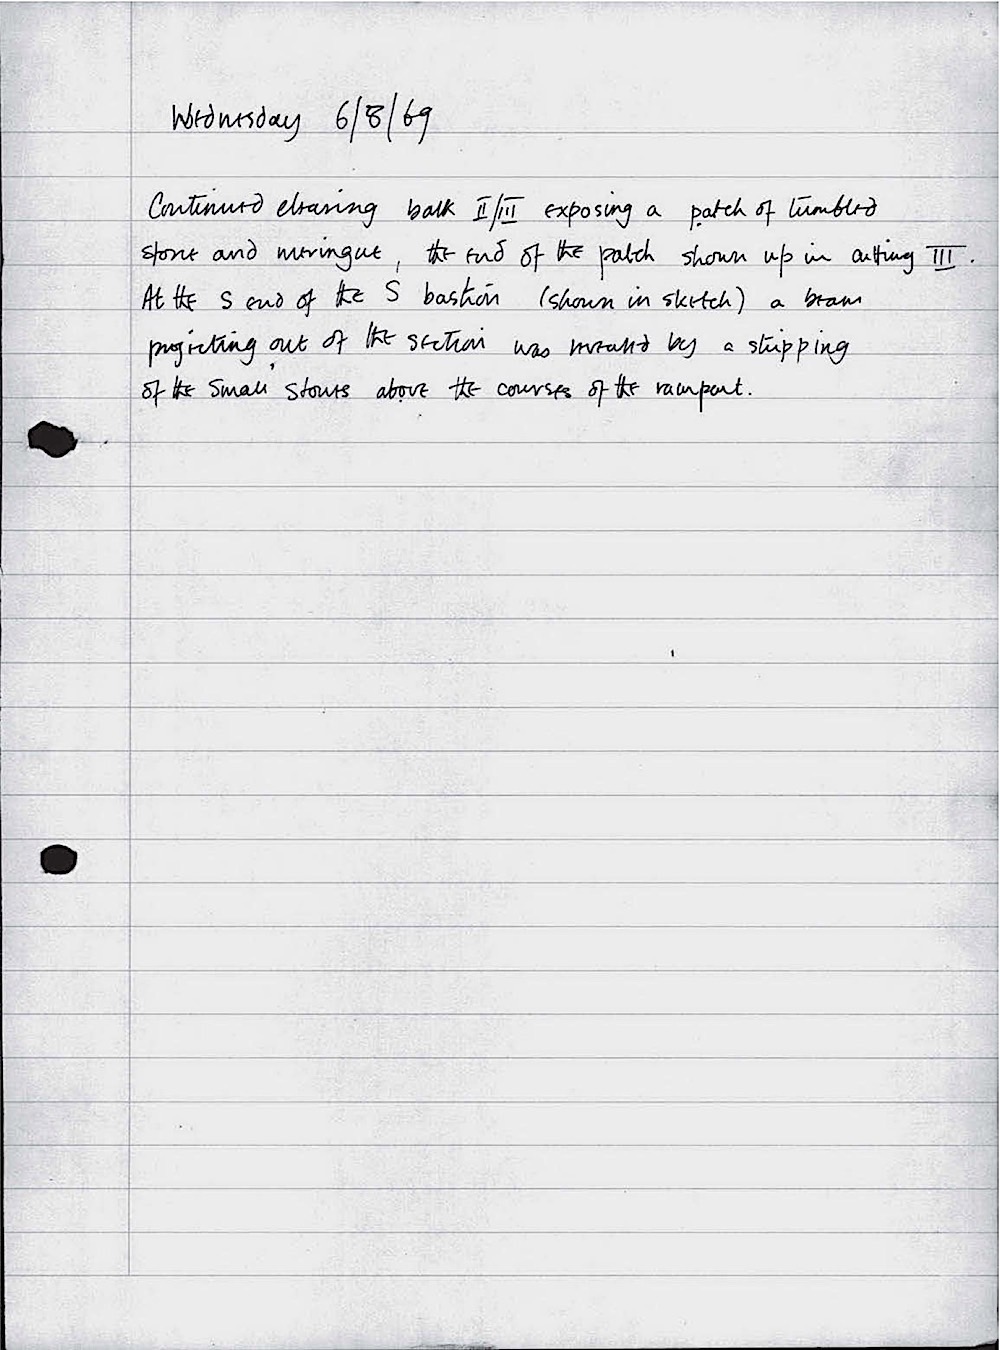 Wednesday 6/8/69
Continued clearing balk II/III exposing a patch of tumbled
stone and meringue, the end of the patch shown up in cutting III.
At the S end of the S bastion (shown in sketch) a beam
projecting out of the section was revealed by a stripping
of the small stones above the courses of the rampart.